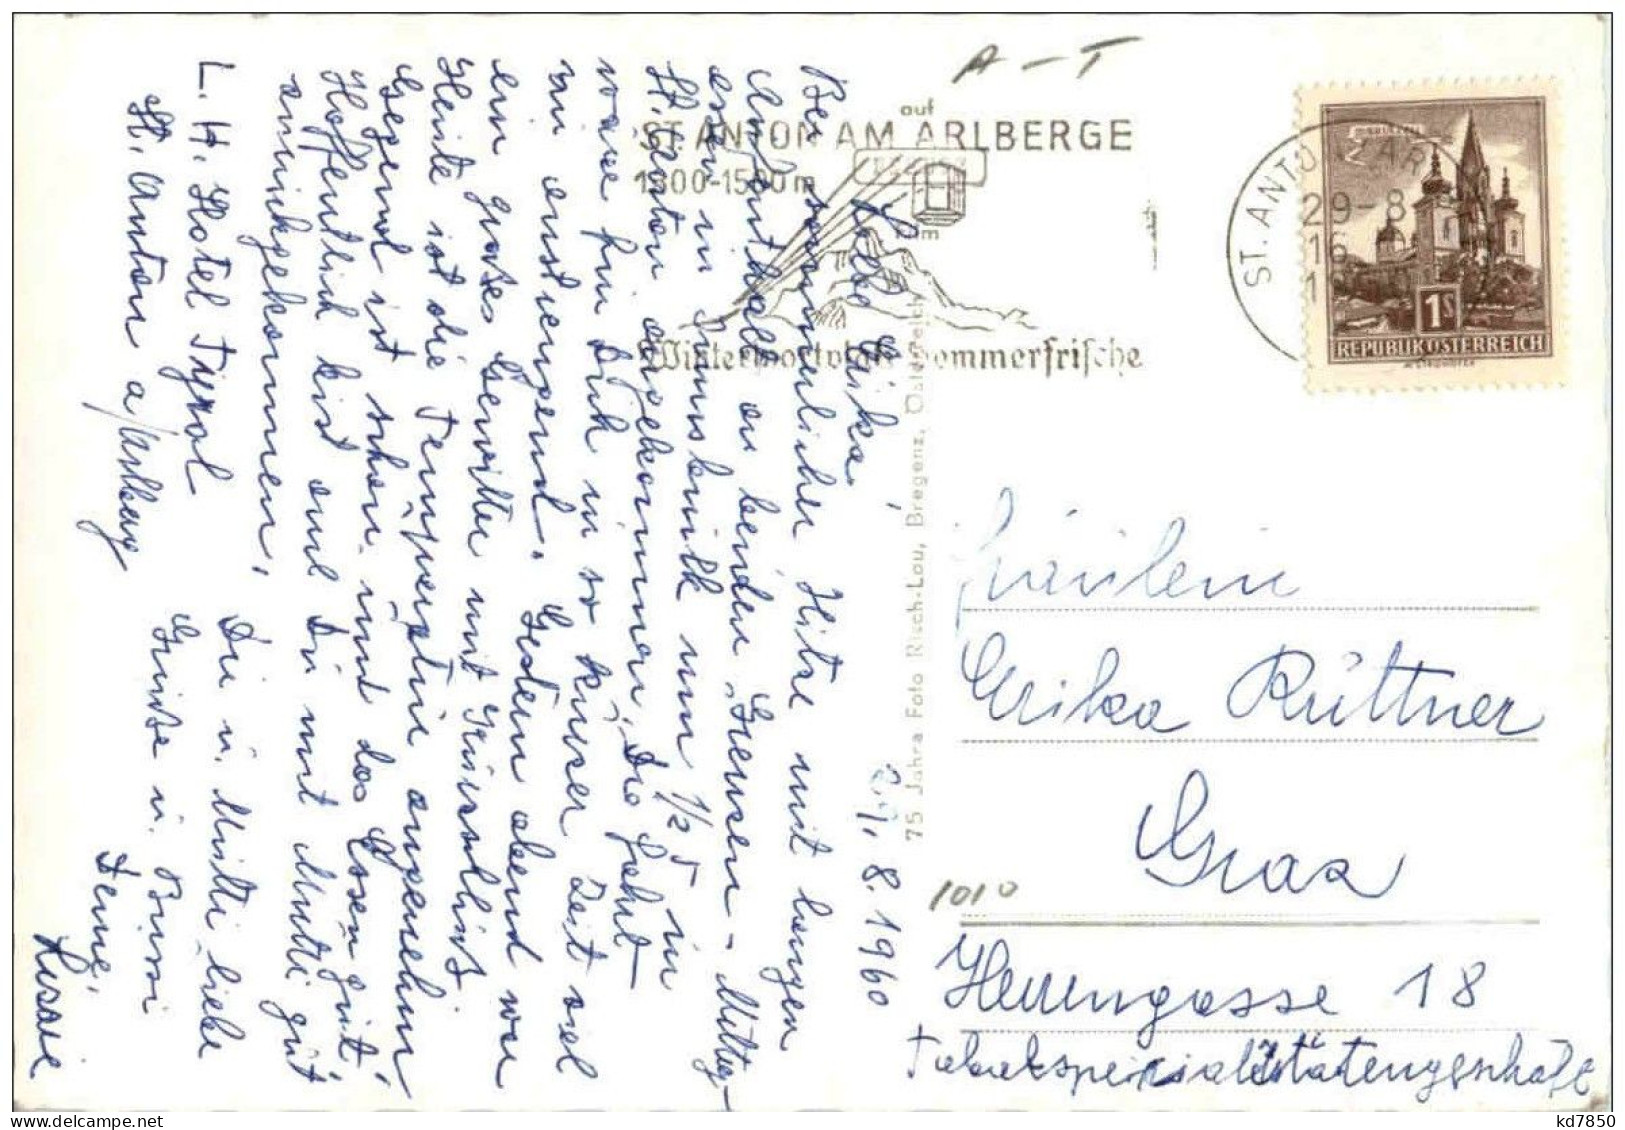 A-T
auf
ST. ANTON AM ARLBERGE
1300-1500m
Wintersportplatz Sommerfrische
ST. ANTON
29-8
MARIAZELL
1S
REPUBLIK ÖSTERREICH
75 Jahre Foto Risch-Lau, Bregenz, Österreich
8.1960
Liebe Erika!
Bei sommerlicher Hitze mit langen
Aufenthalt an beiden Grenzen - Mittag-
essen in Innsbruck um 1/2 5 in
St. Anton angekommen. Die Fahrt
wäre für Dich in so kurzer Zeit viel
zu anstrengend. Gestern abend war
ein großes Gewitter mit
Heute ist die Temperatur angenehm
Gegend ist schön und das Essen gut.
Hoffentlich bist auch Du mit Mutti gut
angekommen.
Dir u. Mutti liebe
Grüße u. Bussi
Deine
Lussie
L. H. Hotel Tyrol
St. Anton a/Arlberg
Fräulein
Erika Rüttner
Graz
1010
Herrengasse 18
Tabakspezialitätengeschäft
kd7850